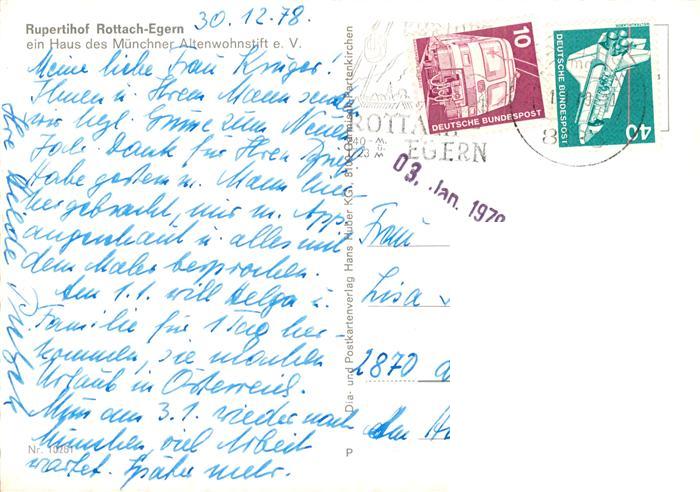 Rupertihof Rottach-Egern
ein Haus des Münchner Altenwohnstift e. V.
30.12.78.
Meine liebe Frau Krüger!
Ihnen u. Ihrem Mann send
wir hzl. Grüße zum Neuen
Jahr. Dank für Ihren Brief
Habe gestern m. Mann hier
hergebracht, mir m. App.
angeschaut u. alles mit
dem Maler besprochen.
Am 1.1. will Helga u.
Familie für 1 Tag her-
kommen, sie machen
Urlaub in Österreich.
Muß am 3.1. wieder nach
München viel Arbeit
wartet. Später mehr.
Ihre
Nr. 10281
P
Dia- und Postkartenverlag Hans Huber KG, 8100 Garmisch-Partenkirchen
10
DEUTSCHE BUNDESPOST
DEUTSCHE BUNDESPOST
40
ROTTACH
EGERN
03. Jan. 1979
Frau
Lisa
2870